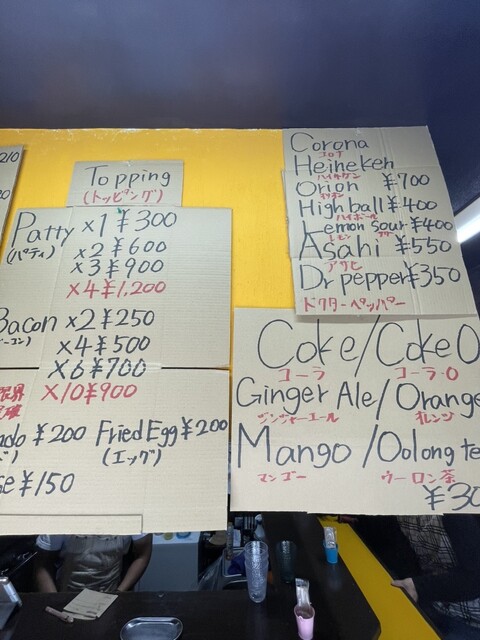 Topping
(トッピング)
Patty ×1 ¥300
(パティ) ×2 ¥600
×3 ¥900
×4 ¥1,200
Bacon ×2 ¥250
ーコン) ×4 ¥500
×6 ¥700
限界 ×10 ¥900
ado ¥200 Fried Egg ¥200
(エッグ)
se ¥150
Corona
コロナ
Heineken
ハイネケン
Orion ¥700
オリオン
High ball ¥400
ハイボール
Lemon Sour ¥400
レモン サワー
Asahi ¥550
アサヒ
Dr pepper ¥350
ドクターペッパー
Coke/Coke O
コーラ コーラ・O
Ginger Ale/Orange
ジンジャーエール オレンジ
Mango/Oolong te
マンゴー ウーロン茶
¥30